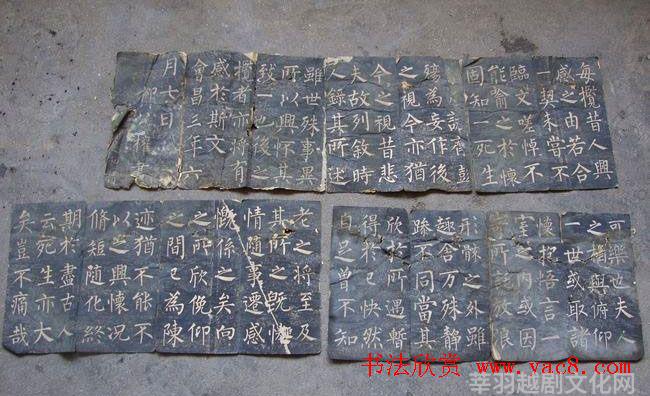 可樂也夫人
之相與俯仰
一世或取諸
懷抱悟言一
室之內或因
寄所託放浪
形骸之外雖
趣舍万殊靜
躁不同當其
欣於所遇暫
得於己快然
自足曾不知
老之將至及
其所之既惓
情隨事遷感
慨係之矣向
之所欣俛仰
之間已為陳
迹猶不能不
以之興懷況
脩短隨化終
期於盡古人
云死生亦大
矣豈不痛哉
每攬昔人興
感之由若合
一契未嘗不
臨文嗟悼不
能喻之於懷
固知一死生
誕齊彭
殤為妄作後
之視今亦猶
今之視昔悲
夫故列敘時
人錄其所述
雖世殊事異
所以興懷其
致一也後之
攬者亦將有
感於斯文
會昌三年六
月七日
柳公權書
书法欣赏 www.yac8.com
幸羽越剧文化网